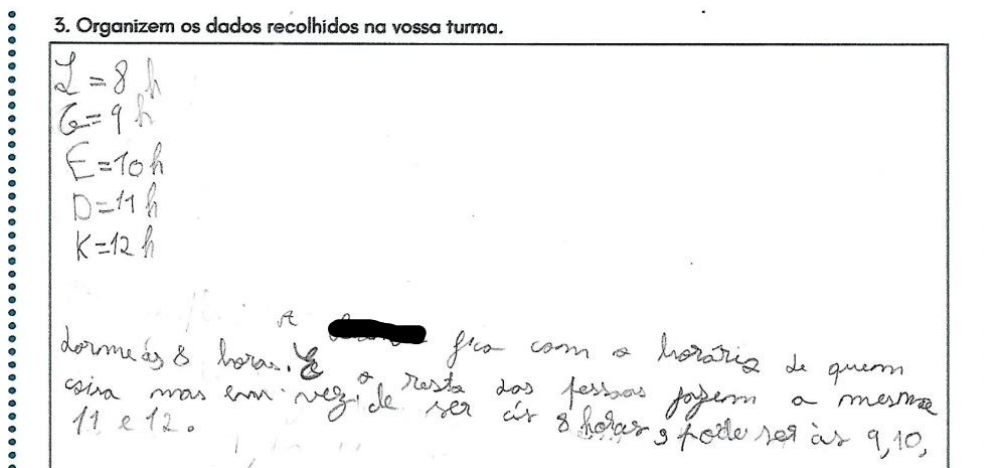 3. Organizem os dados recolhidos na vossa turma.
L = 8 h
G = 9 h
E = 10 h
D = 11 h
K = 12 h
A fica com o horário de quem
dorme ás 8 horas. E o resto das pessoas fazem a mesma
coisa mas em vez de ser ás 8 horas, pode ser às 9, 10,
11 e 12.